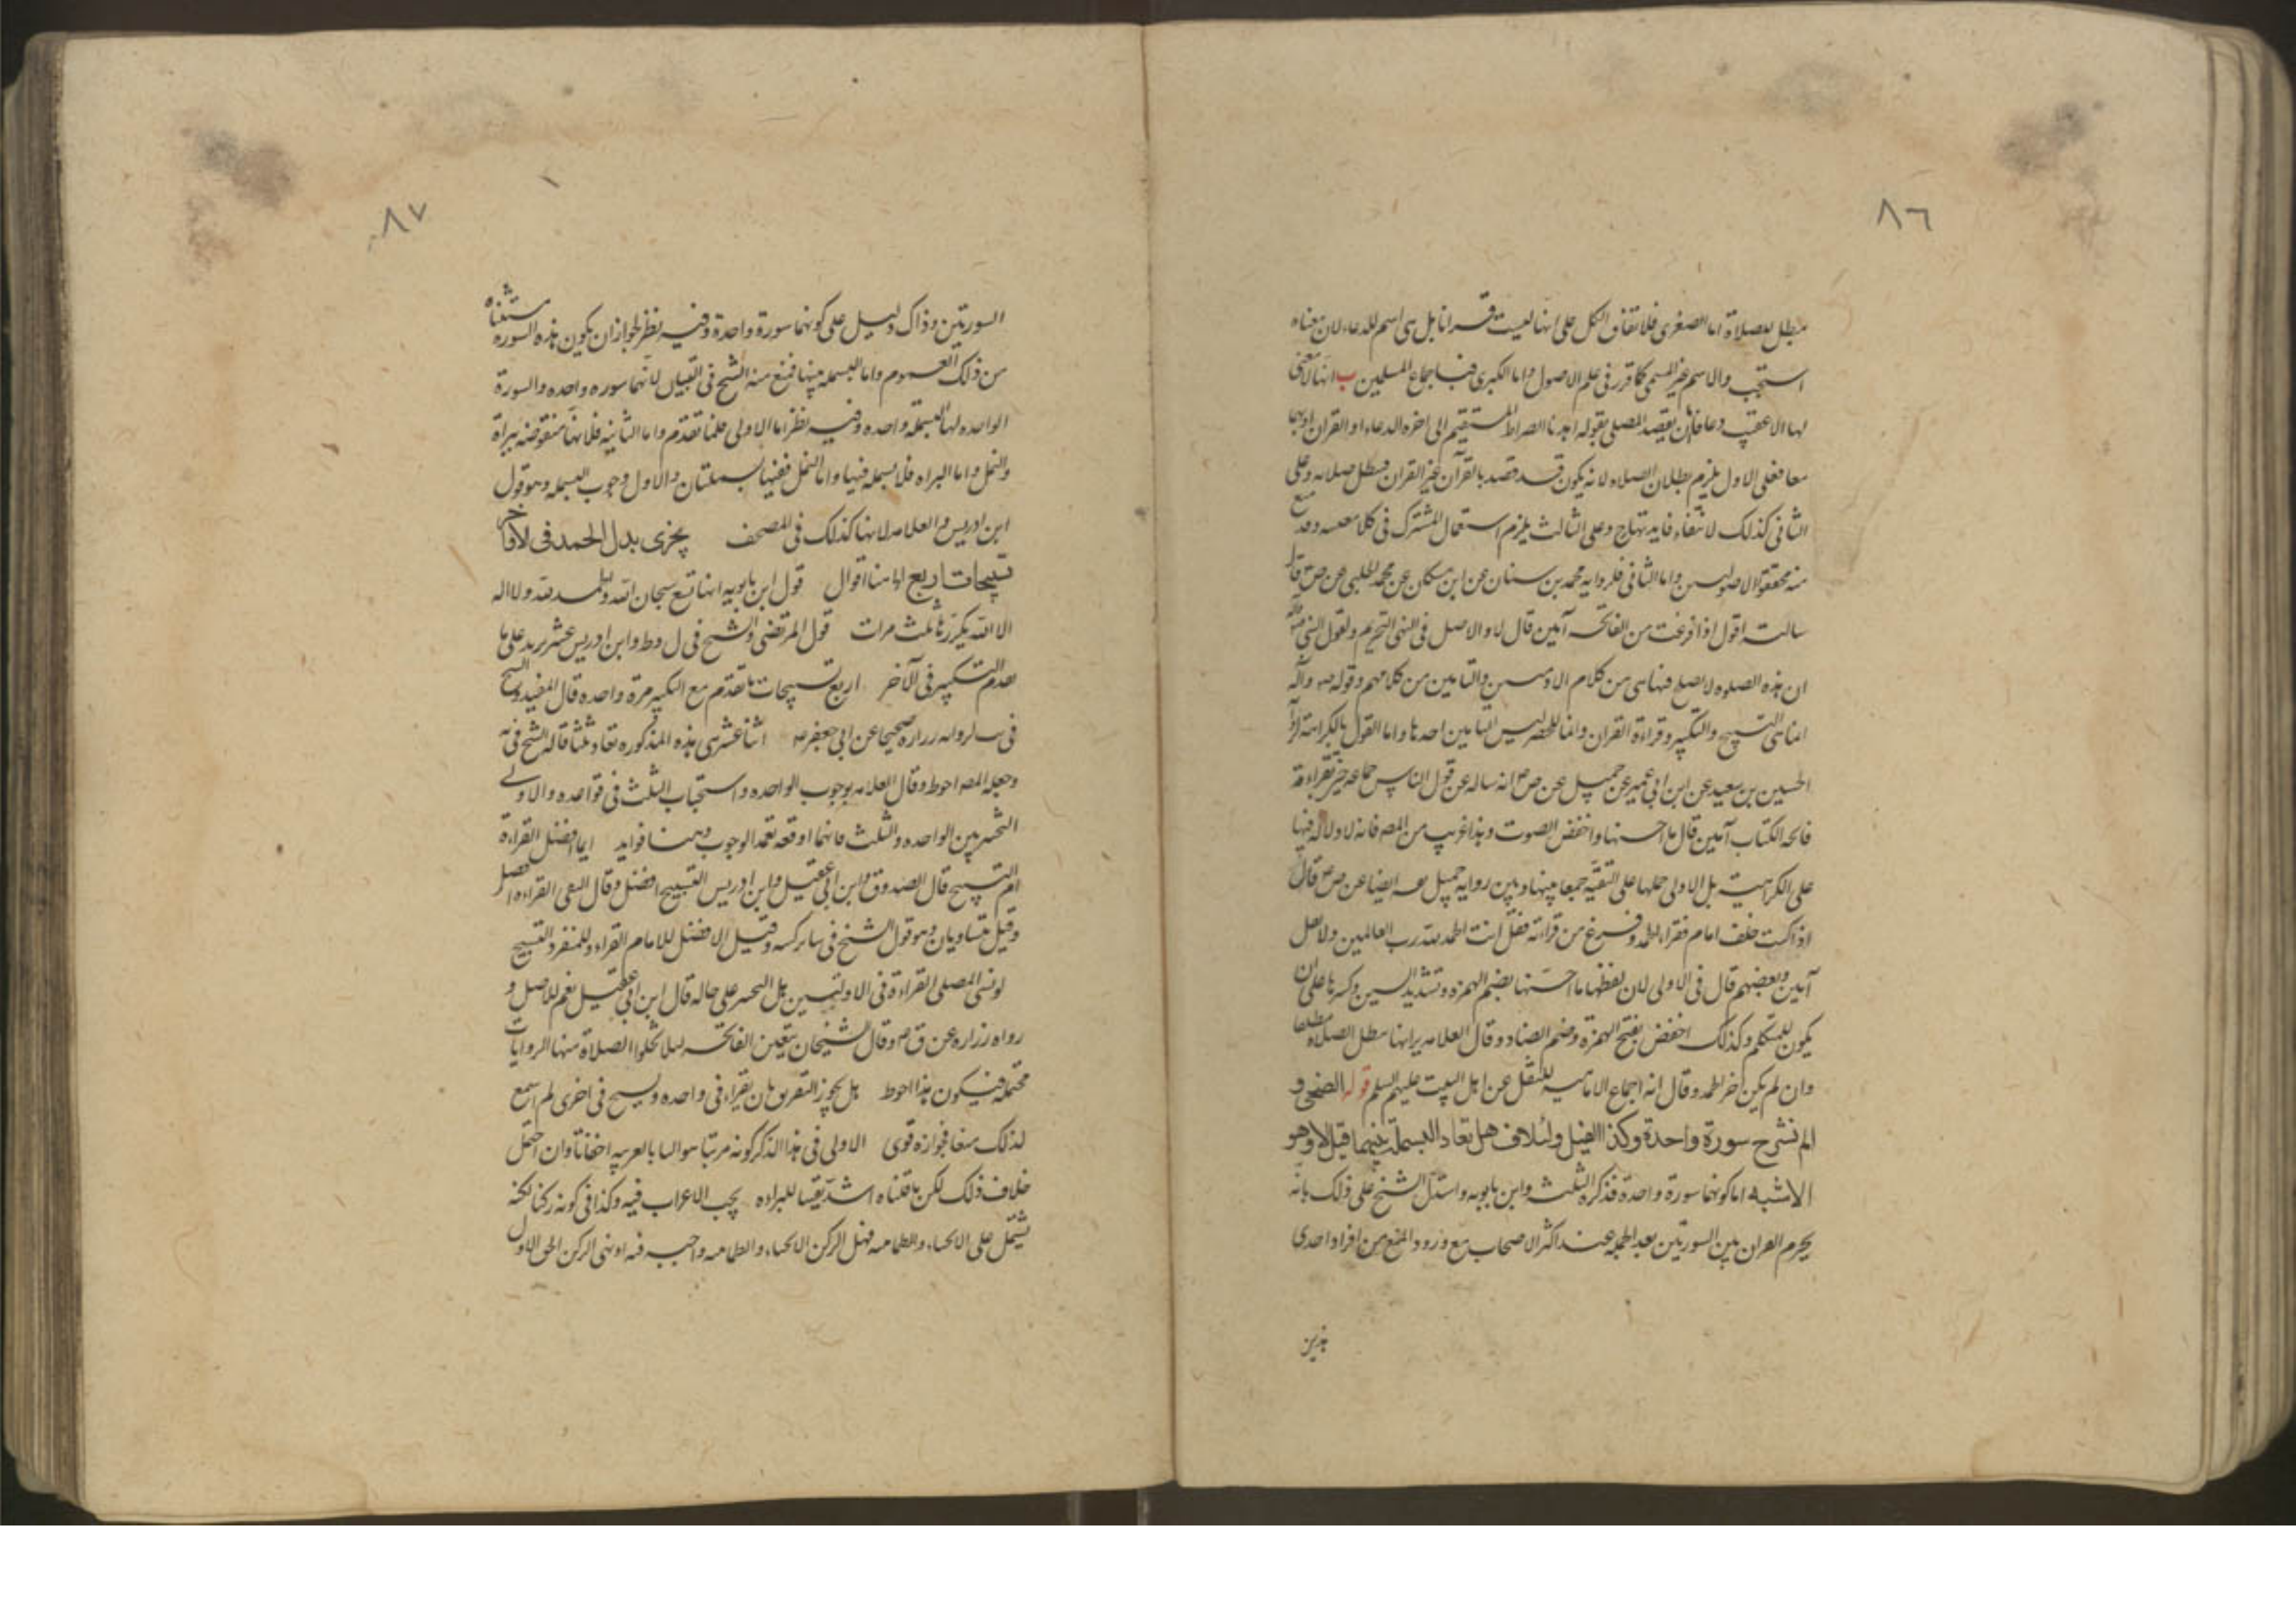 ٨٦
مبطل للصلاة اما الصغرى فلاتفاق الكل على انها ليست قرانا بل هي اسم للدعاء لان معناه
استجب والاسم غير المسمى كما قرر في علم الاصول واما الكبرى فباجماع المسلمين ب انها لا معنى
لها الا عقيب دعا فان يقصد المصلي بقوله اهدنا الصراط المستقيم الى اخره الدعاء او القران او هما
معا فعلى الاول يلزم بطلان الصلاه لانه يكون قد قصد بالقرآن غير القران فتبطل صلاته وعلى
الثاني كذلك لانتفاء فايدتها ج وعلى الثالث يلزم استعمال المشترك في كلا معنييه وقد منع
منه محققو الاصوليين واما الثاني فلروايه محمد بن سنان عن ابن مسكان عن محمد الحلبي عن ص قال
سالته اقول اذا فرغت من الفاتحه آمين قال لا والاصل في النهي التحريم ولقول النبي صلى الله
ان هذه الصلوه لا يصلح فيها شي من كلام الادميين والتامين من كلامهم وقوله ص وآله
انما هي التسبيح والتكبير وقراءة القران وانما للحصر وليس التامين احدها واما القول بالكراهة لروا
الحسين بن سعيد عن ابن ابي عمير عن جميل عن ص ع انه ساله عن قول الناس جماعه حين تقراء
فاتحه الكتاب آمين قال ما احسنها واخفض الصوت وهذا غريب من المصـ فانه لا دلاله فيها
على الكراهيت بل الاولى حملها على التقيه جمعا بينها وبين روايه جميل ايضا عن ص ع قال
اذا كنت خلف امام فقراء الحمد وفرغ من قرائته فقل انت الحمد لله رب العالمين ولا تقل
آمين وبعضهم قال في الاولى لان لفظها ما احسنها بضم الهمزه وتشديد السين وكسرها على ان
يكون للمتكلم وكذلك اخفض بفتح الهمزة وضم الضاد وقال العلامه بر انها تبطل الصلاه مطلقا
وان لم يكن اخر الحمد وقال انه اجماع الاماميه للنقل عن اهل البيت عليهم السلم قوله الضحى و
الم نشرح سورة واحدة وكذا الفيل ولئلاف هل تعاد البسملة بينهما قيل لا وهو
الاشبه اما كونهما سورة واحدة فذكره الثلث وابن بابويه واستدل الشيخ على ذلك بانه
يحرم القران بين السورتين بعد الحمد عند اكثر الاصحاب مع ورود المنع من افراد احدى
هذين
٨٧
السورتين وذاك دليل على كونهما سورة واحدة وفيه نظر لجواز ان يكون هذه السوره مستثناه
من ذلك العموم واما البسمله بينهما فمنع منه الشيخ في التبيان لانهما سوره واحده والسورة
الواحده لها بسمله واحده وفيه نظر اما الاولى فلما تقدم واما الثانيه فلانها منقوضه ببراة
والنمل اما البراه فلا بسمله فيها واما النمل ففيها بسملتان والاول وجوب البسمله وهو قول
ابن ادريس والعلامه لانها كذلك في المصحف يجزى بدل الحمد في الاواخر
تسبيحات اربع ا هنا اقوال قول ابن بابويه انها تسع سبحان الله والحمد لله ولا اله
الا الله يكررها ثلث مرات قول المرتضى والشيخ في ل وط وابن ادريس عشر يزيد على ما
تقدم التكبير في الآخر اربع تسبيحات ما تقدم مع التكبير مرة واحده قال المفيد والشيخ
في لروايه زراره صحيحا عن ابي جعفر ع اثنا عشر هي هذه المذكوره تعاد ثلثا قاله الشيخ في يه
وجعله المصـ احوط وقال العلامه بوجوب الواحده واستحباب الثلث في قواعده والاولى
التخيير بين الواحده والثلث فانهما اوقعه بقصد الوجوب وهنا فوايد ايما افضل القراءة
ام التسبيح قال الصدوق وابن ابي عقيل وابن ادريس التسبيح افضل وقال التقي القراءه افضل
وقيل متساويان وهو قول الشيخ في ساير كتبه وقيل الافضل للامام القراءه وللمنفرد التسبيح
لو نسى المصلي القراءة في الاوليين هل التخيير على حاله قال ابن ابي عقيل نعم للاصل و
رواه زراره عن ق ع وقال الشيخان يتعين الفاتحه ليلا تخلوا الصلاة منها الروايات
محتمله فيكون هذا احوط هل يجوز التفريق بان يقراء في واحده ويسبح في اخرى لم اسمع
لذلك منعا فجوازه قوى الاولى في هذا الذكر كونه مرتبا متواليا بالعربيه اخفاتا وان احتمل
خلاف ذلك لكن ما قلناه اشد يقينا للبراءه يجب الاعراب فيه وكذا في كونه ركنا لكنه
يشتمل على الانحناء والطمانينه فهل الركن الانحناء والطمانينه واجب فيه او هي الركن الحق الاول